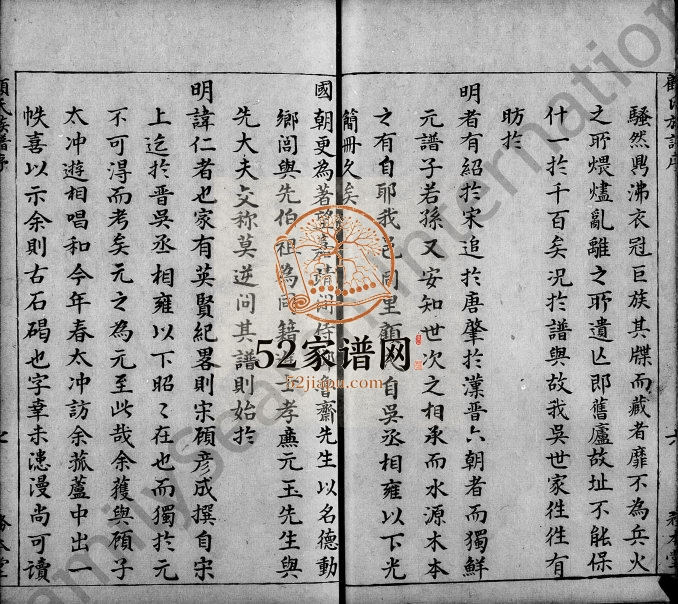 騷然鼎沸衣冠巨族其牒而藏者靡不為兵火
之所煨燼亂離之所遺亾即舊廬故址不能保
什一於千百矣況於譜與故我吳世家徃徃有
昉於
明者有紹於宋追於唐肇於漢晉六朝者而獨鮮
元譜子若孫又安知世次之相承而水源木本
之有自耶我邑同里顧自吳丞相雍以下光
簡冊久矣
國朝更為著望嘉靖間侍魯齋先生以名德動
鄉閭與先伯祖為同籍士孝廉元玉先生與
先大夫交称莫逆問其譜則始於
明諱仁者也家有英賢紀畧則宋碩彥成撰自宋
上迄於晉吳丞相雍以下昭〻在也而獨於元
不可得而考矣元之為元至此哉余獲與碩子
太冲遊相唱和今年春太冲訪余菰蘆中出一
帙喜以示余則古石碣也字幸未漶漫尚可讀
顧氏族譜序
52家谱网
52jiapu.com
FamilySearch International